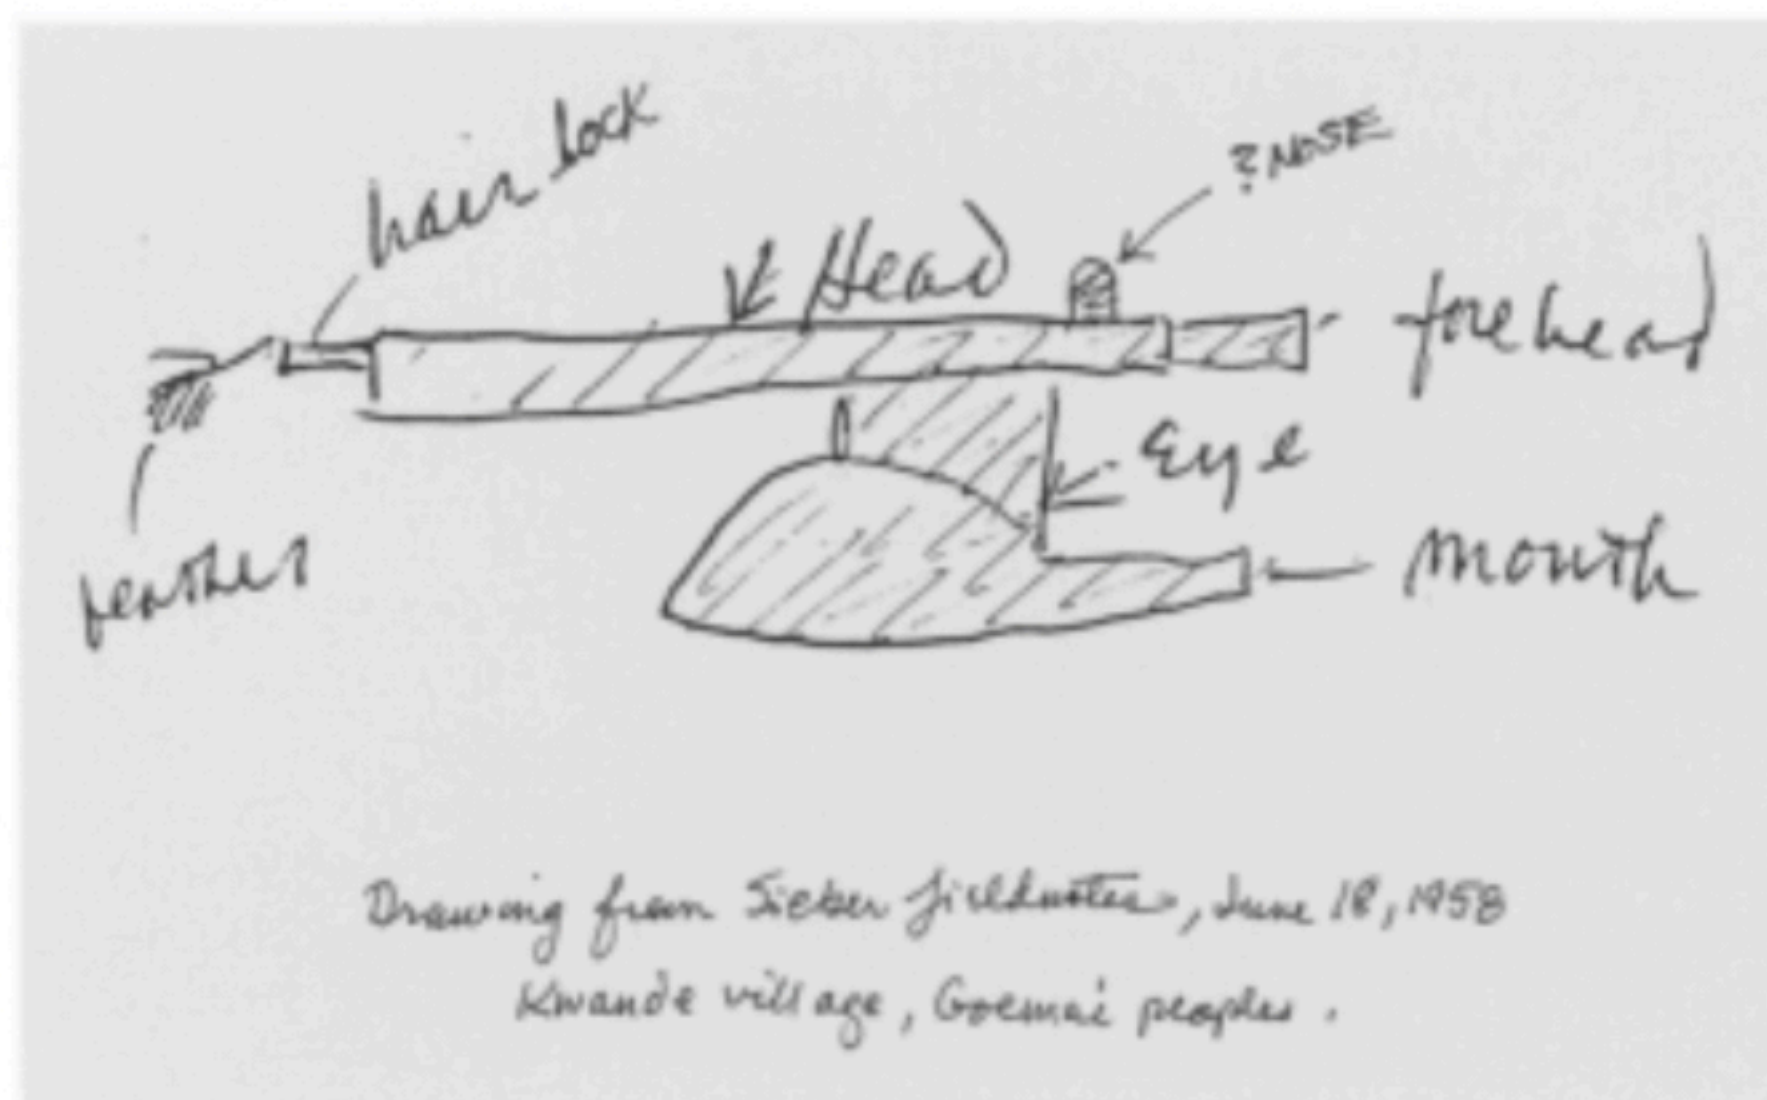 hair lock
? NOSE
Head
forehead
Eye
feather
mouth
Drawing from Sieber fieldnotes, June 18, 1958
Kwande village, Goemai peoples.